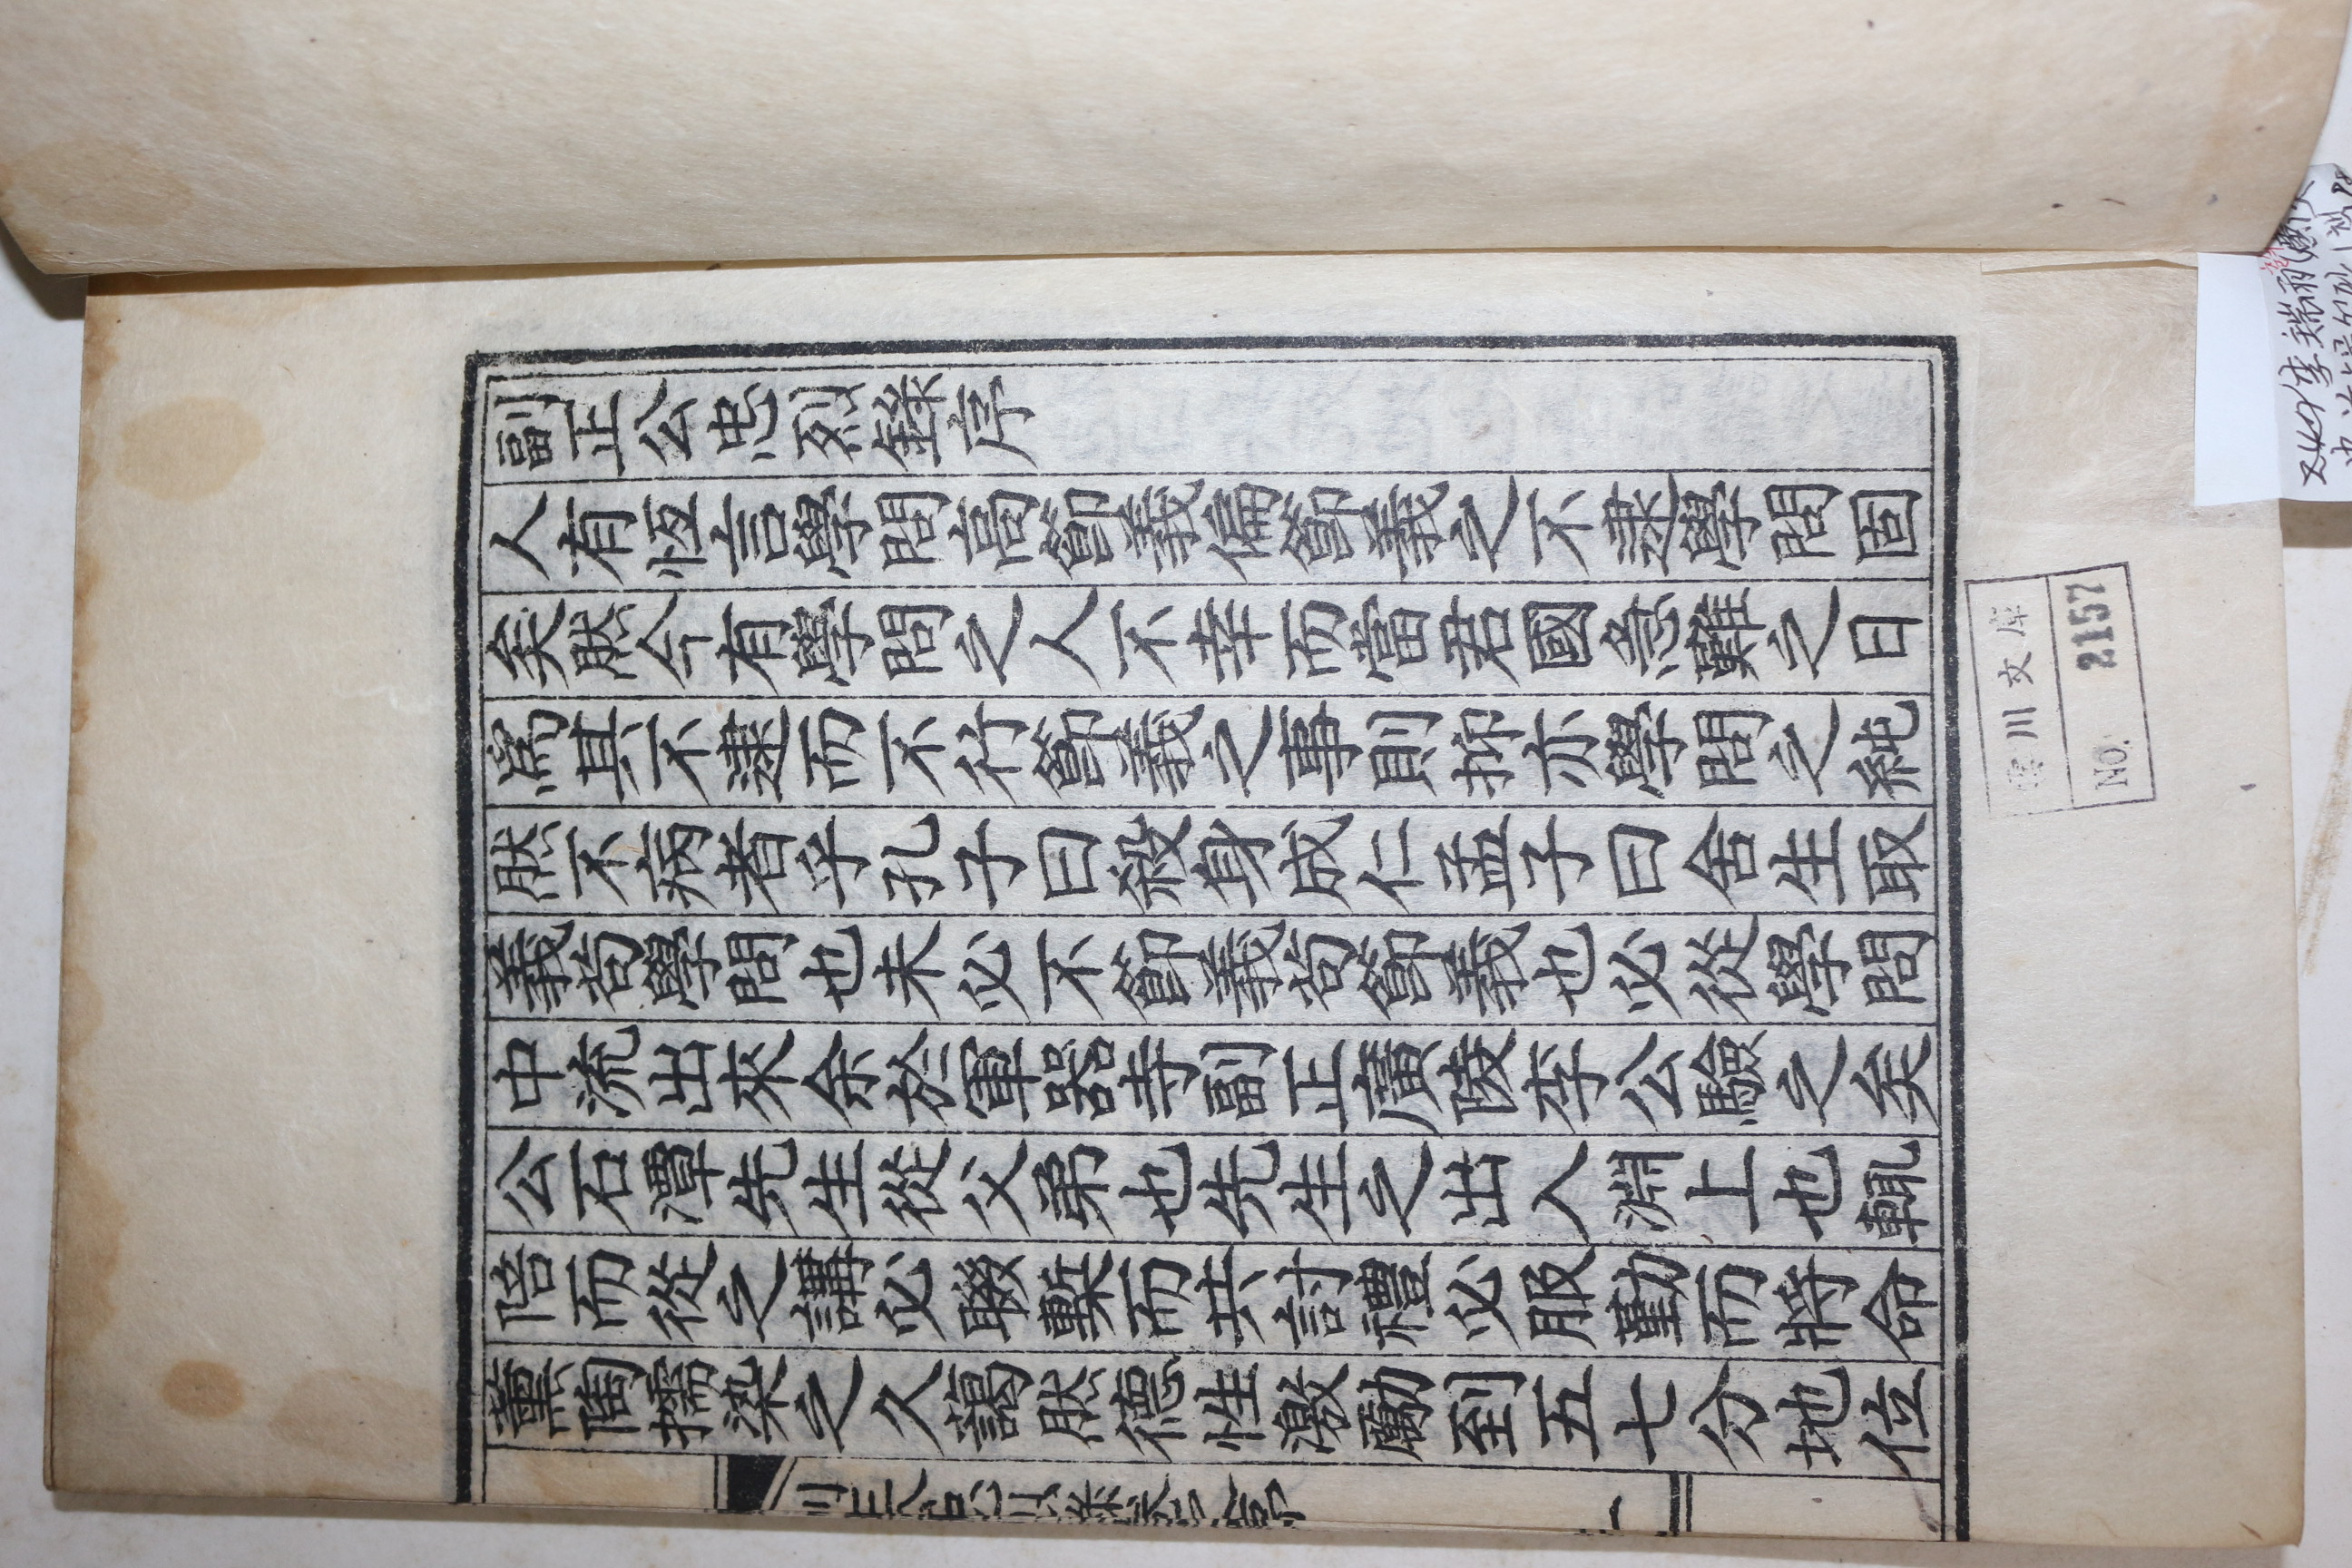 副正公忠烈錄序
人有恒言學問高節義偏節義之不逮學問固
矣然今有學問之人不幸而當君國急難之日
爲其不逮而不行節義之事則抑亦學問之純
然不病者乎孔子曰殺身成仁孟子曰舍生取
義苟學問也未必不節義苟節義也必從學問
中流出來余於軍器寺副正廣陵李公驗之矣
公石潭先生從父弟也先生之出入淵上也輒
陪而從之講必聯槧而共討禮必服勤而將命
薰陶擩染之久藹然德性激勵到五七分地位
川文庫
NO. 2157